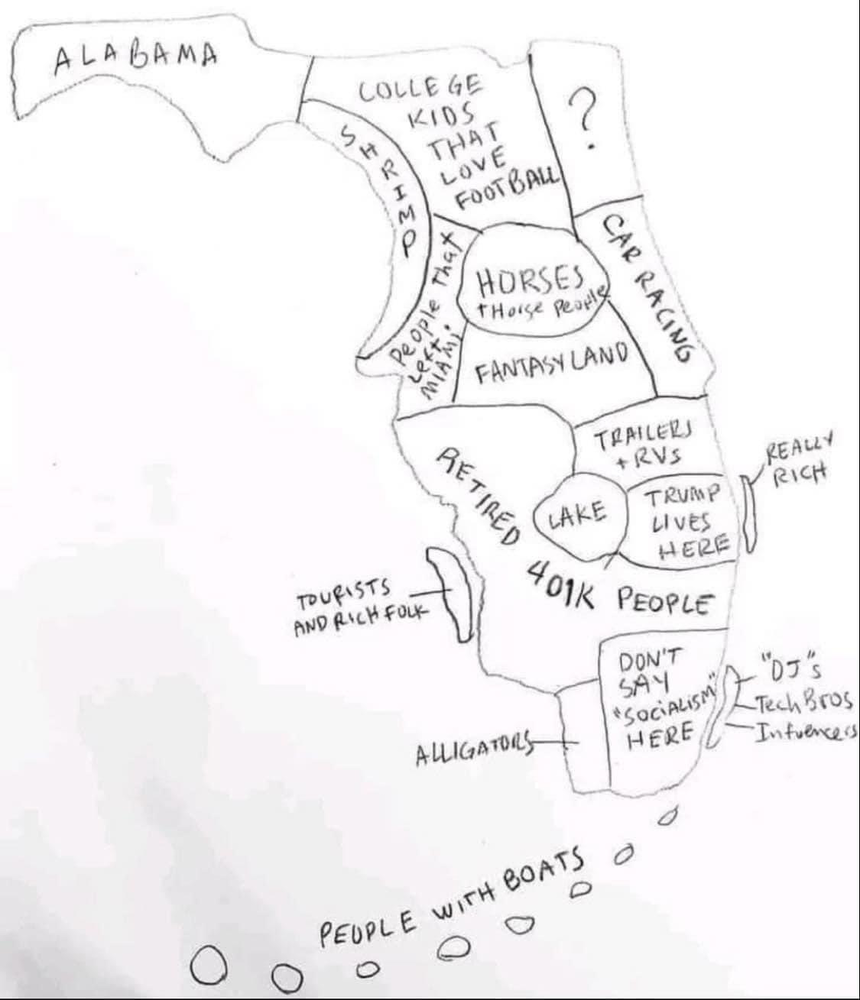 ALABAMA
COLLEGE
KIDS
THAT
LOVE
FOOTBALL
?
SHRIMP
CAR RACING
HORSES
+ Horse People
People That
Left
MIAMI.
FANTASY LAND
TRAILERS
+ RVs
REALLY
RICH
RETIRED 401K PEOPLE
LAKE
TRUMP
LIVES
HERE
TOURISTS
AND RICH FOLK
DON'T
SAY
"SOCIALISM"
HERE
"DJ"s
Tech Bros
Infuencers
ALLIGATORS
PEOPLE WITH BOATS